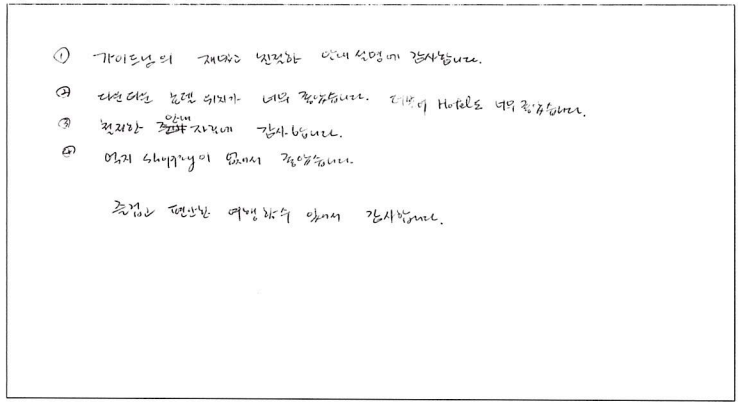 ① 가이드님의 재밌고 친절한 안내 설명에 감사합니다.
② 호텔 위치가 너무 좋았습니다. 더불어 Hotel도 너무 좋았습니다.
③ 친절한 안내 감사합니다.
④ 억지 shopping이 없어서 좋았습니다.
즐겁고 편안한 여행 할 수 있어서 감사합니다.